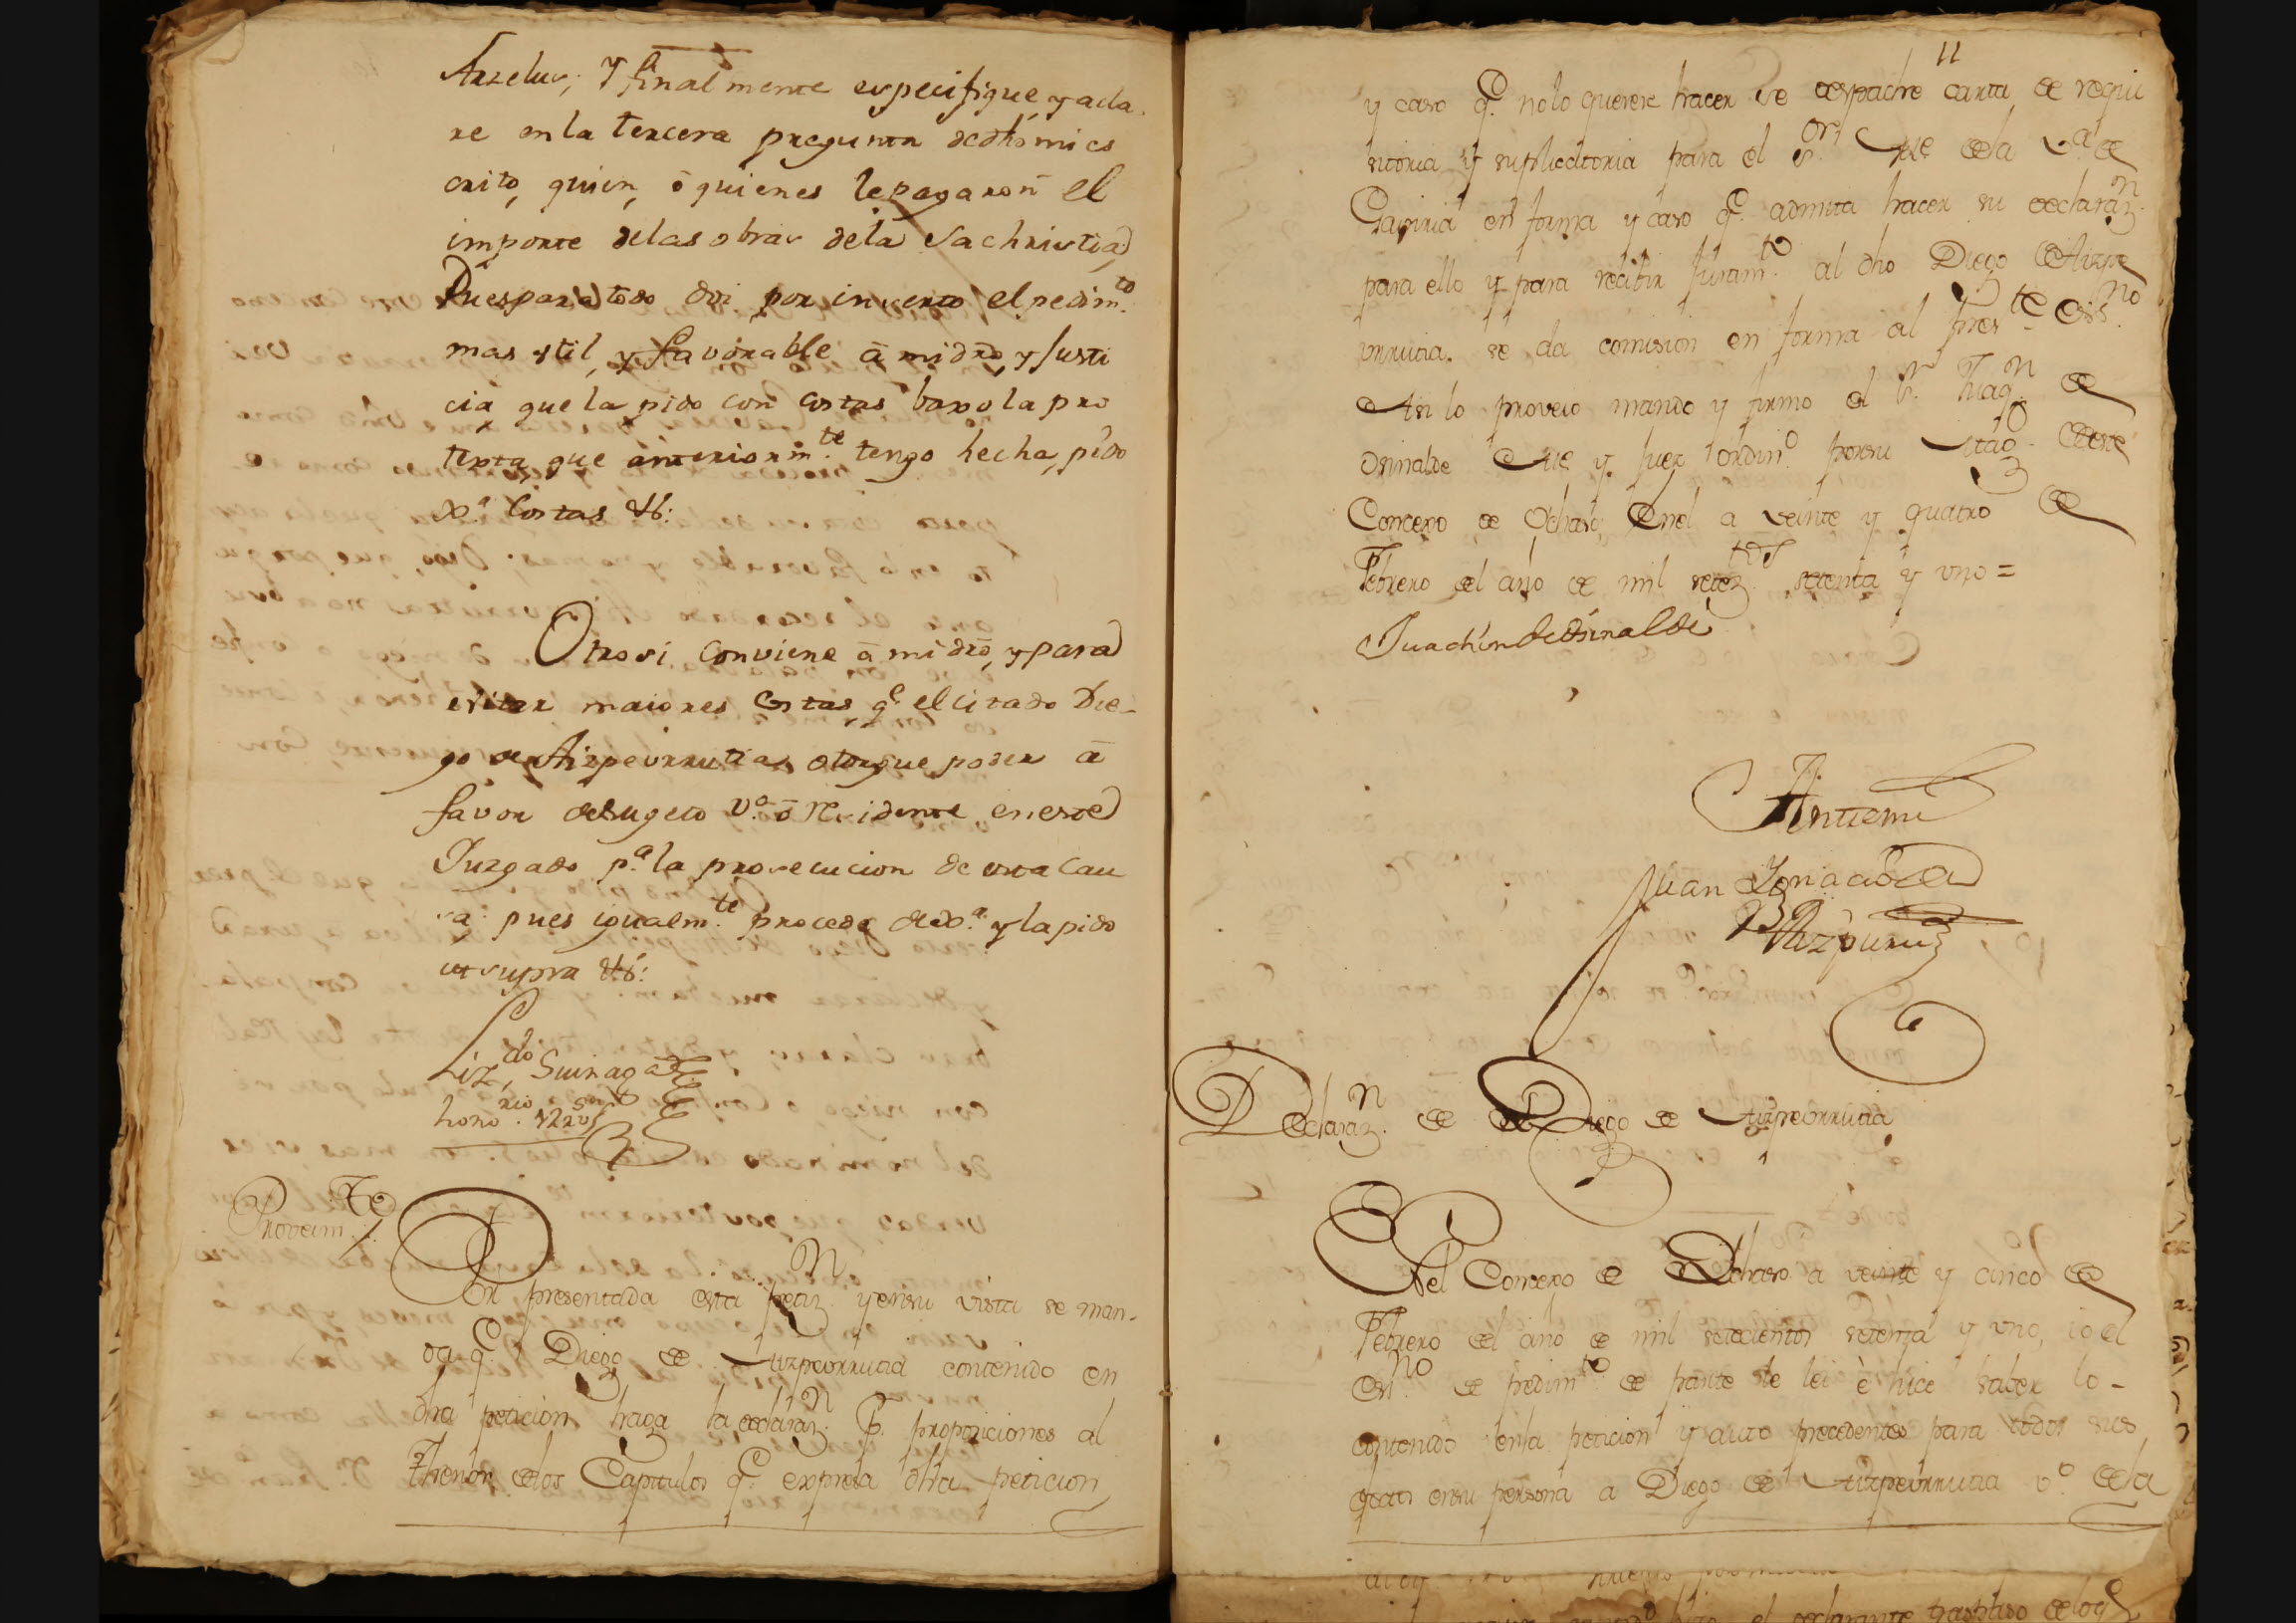 Arzelus; y finalmente especifique y acla-
re en la tercera pregunta de dho mi es
crito, quien, ô quienes le pagaron el
importe de las obras de la Sachristia,
Pues para todo doi por inserto el pedim.to
mas util, y favorable â mi dro, y Justi
cia que la pido con costas baxo la pro
texta que anteriorm.te tengo hecha, pido
xa. Costas &c:
Otrosi conviene â mi dro, y para
evitar maiores costas q.e el citado Die-
go de Aizpeurrutia otorgue poder â
favor de sugeto v.o ô residente en este
Juzgado p.a la prosecucion de esta cau
sa: pues igualm.te procede de xa. y la pido
ut supra &c:
Liz.do Suinaga
hono.rio
Proveim.to
Por presentada esta petiz.n y en su vista se man-
da q.e Diego de Aizpeurrutia contenido en
dha peticion haga la declaraz.n P. proposiciones al
thenor de los Capitulos q.e expresa dha peticion
11
y caso q.e no lo quiere hacer se despache carta de requi
sitoria y suplicatoria para el S.or Alc.e de la V.a de
Gaviria en forma y caso q.e admita hacer su declaraz.n
para ello y para recibir juram.to al dho Diego de Aizpe
urrutia. se da comision en forma al pres.te ess.no
Asi lo proveio mando y firmo el S.r Juaq.n de
Osinalde Alc.e y Juez ordin.o por su Mag. de este
Concexo de Ochavo, En el a veinte y quatro de
Febrero del año de mil setez.tos setenta y uno =
Juachin de Osinalde
Antemi
Juan Ignacio de
Aizpuru
Declaraz.n de Diego de Aizpeurrutia
En el Concexo de Ochavo a veinte y cinco de
Febrero del año de mil setecientos setenta y uno, io el
ess.no de pedim.to de parte le lei è hice saber lo-
contenido en la peticion y auto precedentes para todos sus
efectos en su persona a Diego de Aizpeurrutia v.o de la
el declarante traslado de los